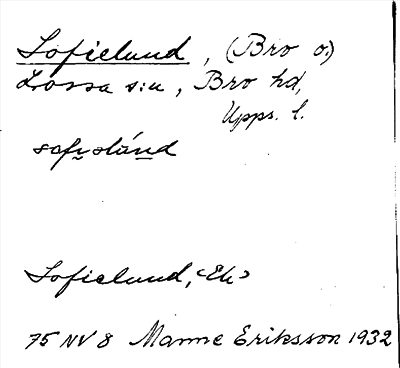 Sofielund, (Bro o.)
Låssa s:n, Bro hd,
Upps. l.
sofislánd
Sofielund, <Ek>
75 NV 8 Manne Eriksson 1932